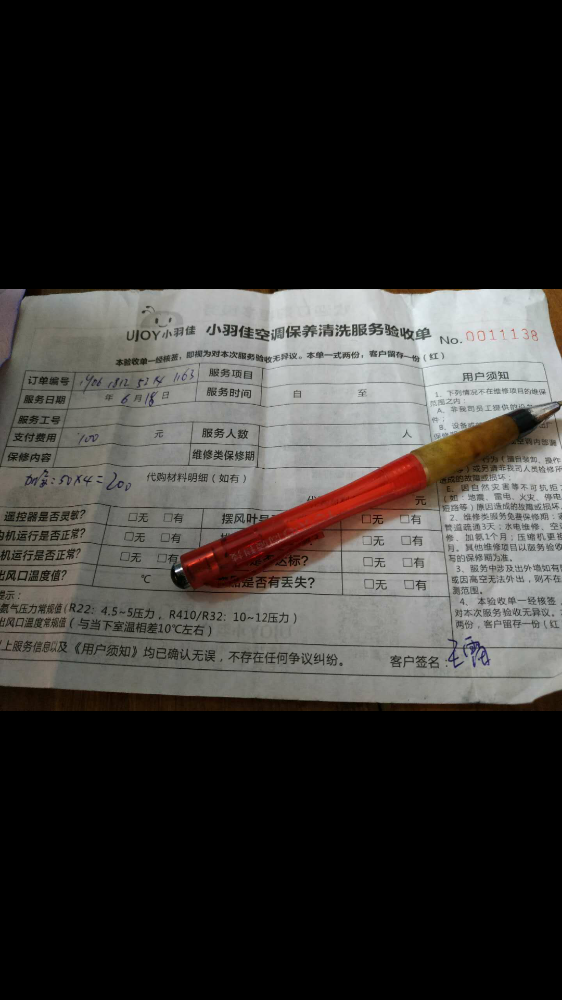 UJOY小羽佳 小羽佳空调保养清洗服务验收单 No. 0011138
本验收单一经核签,即视为对本次服务验收无异议。本单一式两份,客户留存一份(红)
订单编号 1906 1812 5214 1163 服务项目
服务日期 年 6 月 18 日 服务时间 自 至
服务工号
支付费用 100 元 服务人数 人
保修内容 维修类保修期
50X4=200 代购材料明细(如有)
元
遥控器是否灵敏? □无 □有 摆风叶是 □无 □有
机运行是否正常? □无 □有 □无 □有
机运行是否正常? □无 □有 达标? □无 □有
出风口温度值? ℃ 是否有丢失? □无 □有
提示:
氨气压力常规值(R22:4.5~5压力,R410/R32:10~12压力)
出风口温度常规值(与当下室温相差10℃左右)
上服务信息以及《用户须知》均已确认无误,不存在任何争议纠纷。 客户签名:
用户须知
1、下列情况不在维修项目的维保
范围之内:
A、非我司员工提供的
件;
B、设备或
操作
或另请非我司人员检修所
造成的故障或损坏
E、因自然灾害等不可抗拒
(如:地震、雷电、火灾、停电
短路等)原因造成的故障或损坏
2、维修类服务免费保修期:
管道疏通3天;水电维修、空
修、加氨1个月;压缩机更换
月。其他维修项目以服务验收
写的保修期为准。
3、服务中涉及出外墙如有
或因高空无法外出,则不在
测范围。
4、本验收单一经核签
对本次服务验收无异议。
两份,客户留存一份(红